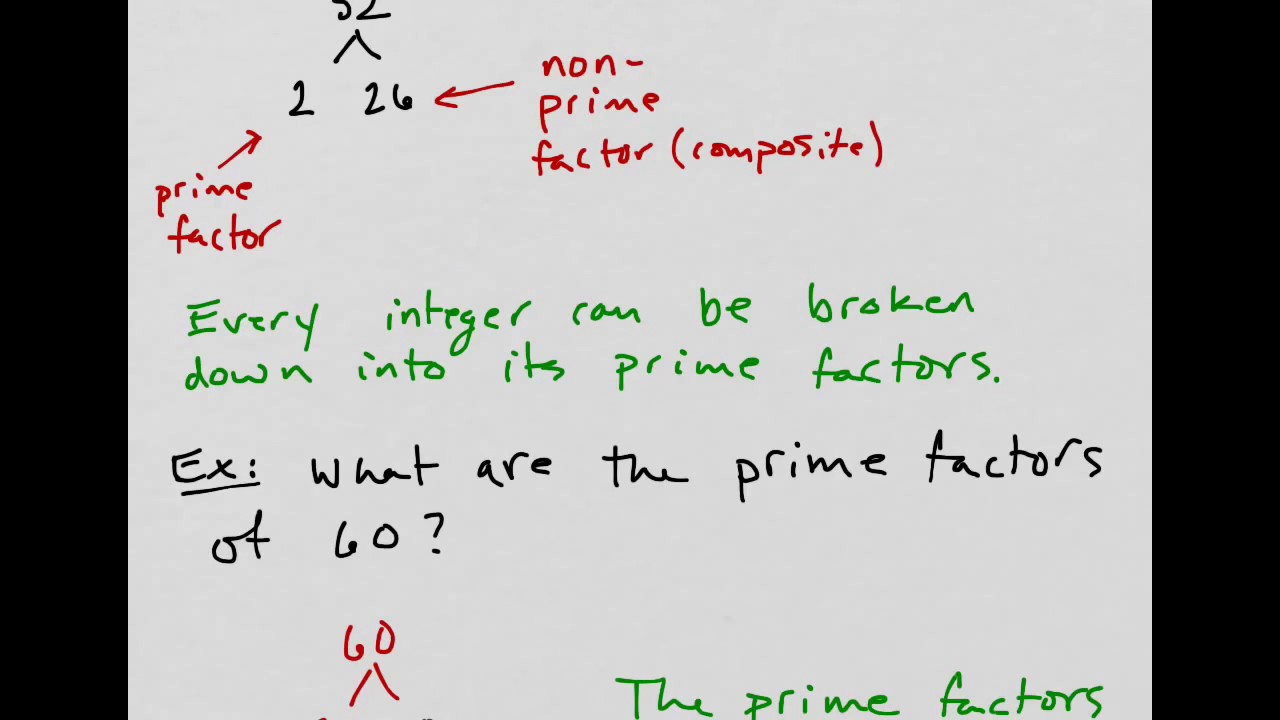 52
2 26
non-
prime
factor (composite)
prime
factor
Every integer can be broken
down into its prime factors.
Ex: What are the prime factors
of 60?
60
The prime factors